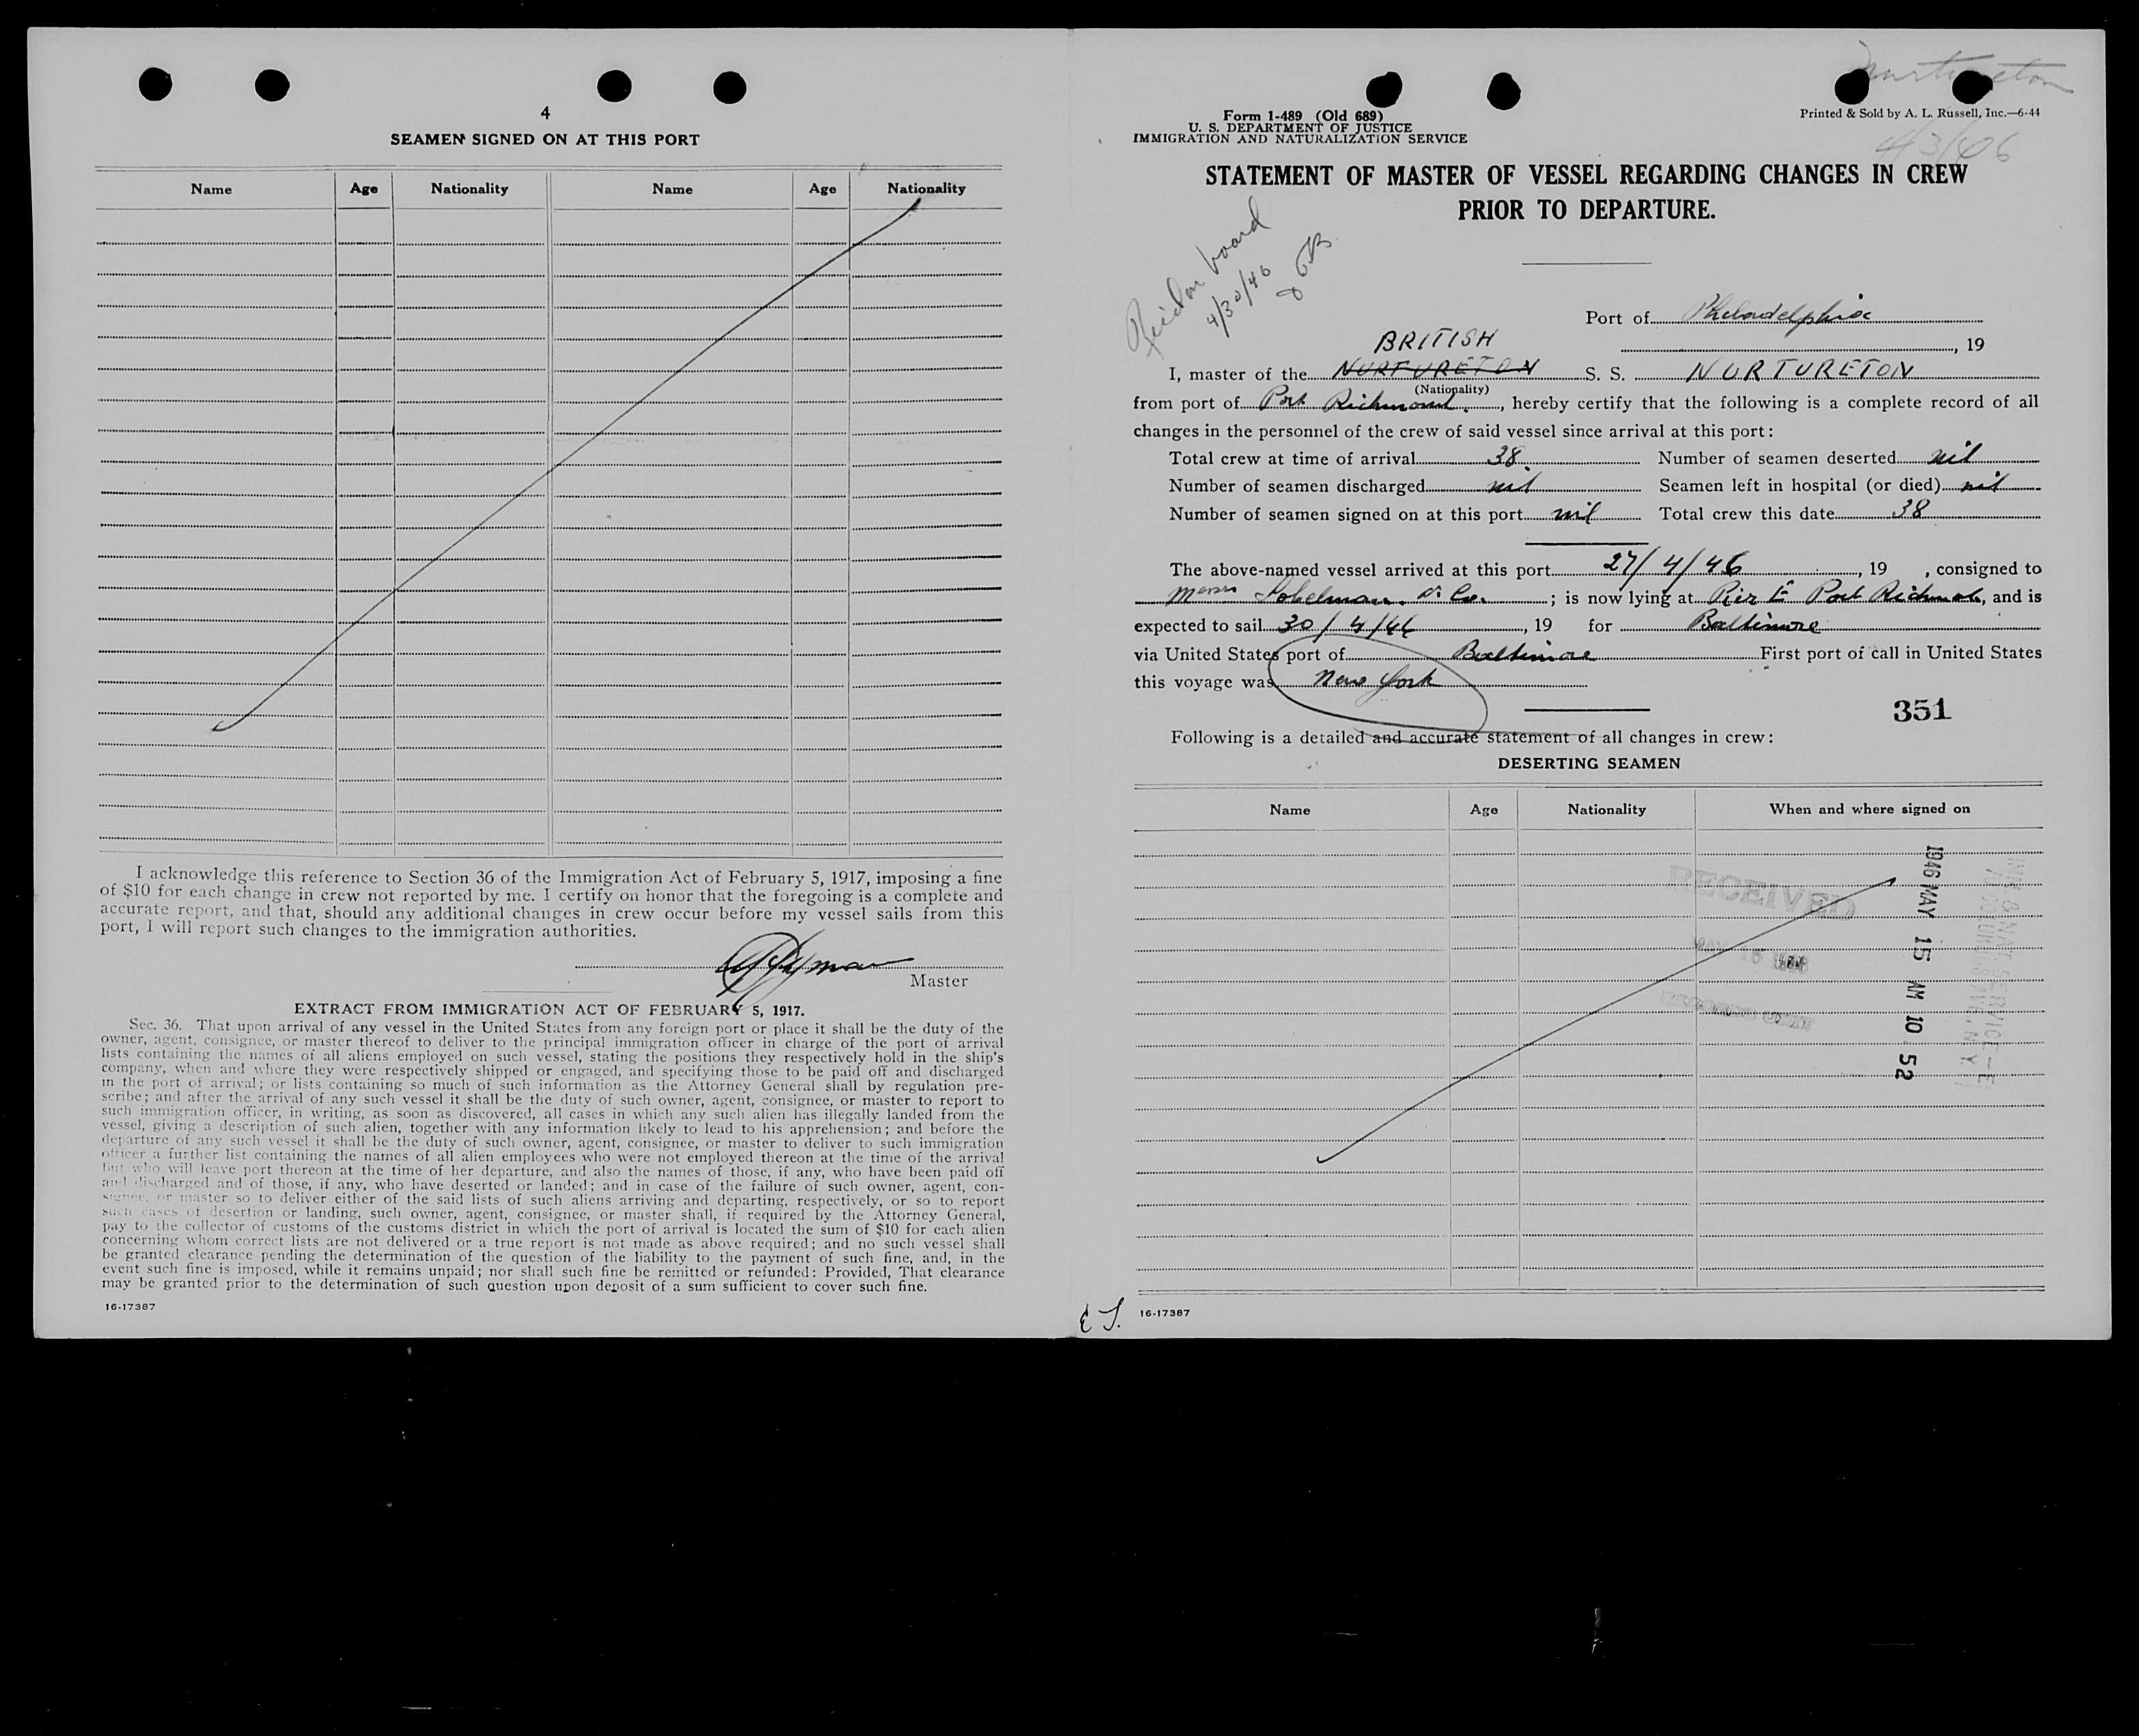 4
SEAMEN SIGNED ON AT THIS PORT
Name Age Nationality Name Age Nationality
I acknowledge this reference to Section 36 of the Immigration Act of February 5, 1917, imposing a fine
of $10 for each change in crew not reported by me. I certify on honor that the foregoing is a complete and
accurate report, and that, should any additional changes in crew occur before my vessel sails from this
port, I will report such changes to the immigration authorities.
Master
EXTRACT FROM IMMIGRATION ACT OF FEBRUARY 5, 1917.
Sec. 36. That upon arrival of any vessel in the United States from any foreign port or place it shall be the duty of the
owner, agent, consignee, or master thereof to deliver to the principal immigration officer in charge of the port of arrival
lists containing the names of all aliens employed on such vessel, stating the positions they respectively hold in the ship's
company, when and where they were respectively shipped or engaged, and specifying those to be paid off and discharged
in the port of arrival; or lists containing so much of such information as the Attorney General shall by regulation pre-
scribe; and after the arrival of any such vessel it shall be the duty of such owner, agent, consignee, or master to report to
such immigration officer, in writing, as soon as discovered, all cases in which any such alien has illegally landed from the
vessel, giving a description of such alien, together with any information likely to lead to his apprehension; and before the
departure of any such vessel it shall be the duty of such owner, agent, consignee, or master to deliver to such immigration
officer a further list containing the names of all alien employees who were not employed thereon at the time of the arrival
but who will leave port thereon at the time of her departure, and also the names of those, if any, who have been paid off
and discharged and of those, if any, who have deserted or landed; and in case of the failure of such owner, agent, con-
signee, or master so to deliver either of the said lists of such aliens arriving and departing, respectively, or so to report
such cases of desertion or landing, such owner, agent, consignee, or master shall, if required by the Attorney General,
pay to the collector of customs of the customs district in which the port of arrival is located the sum of $10 for each alien
concerning whom correct lists are not delivered or a true report is not made as above required; and no such vessel shall
be granted clearance pending the determination of the question of the liability to the payment of such fine, and, in the
event such fine is imposed, while it remains unpaid; nor shall such fine be remitted or refunded: Provided, That clearance
may be granted prior to the determination of such question upon deposit of a sum sufficient to cover such fine.
16-17387
Form 1-489 (Old 689)
U. S. DEPARTMENT OF JUSTICE
IMMIGRATION AND NATURALIZATION SERVICE
Printed & Sold by A. L. Russell, Inc.—6-44
STATEMENT OF MASTER OF VESSEL REGARDING CHANGES IN CREW
PRIOR TO DEPARTURE.
board
4/30/46
Port of Philadelphia
, 19
BRITISH
I, master of the NURTURETON S. S. NURTURETON
(Nationality)
from port of Port Richmond, hereby certify that the following is a complete record of all
changes in the personnel of the crew of said vessel since arrival at this port:
Total crew at time of arrival 38 Number of seamen deserted nil
Number of seamen discharged nil Seamen left in hospital (or died) nil
Number of seamen signed on at this port nil Total crew this date 38
The above-named vessel arrived at this port 27/4/46, 19 , consigned to
Messrs & Co. ; is now lying at Pier E Port Richmond, and is
expected to sail 30/4/46, 19 for Baltimore
via United States port of Baltimore First port of call in United States
this voyage was New York
351
Following is a detailed and accurate statement of all changes in crew:
DESERTING SEAMEN
Name Age Nationality When and where signed on
RECEIVED
1946 MAY 15 AM 10 52
16-17387